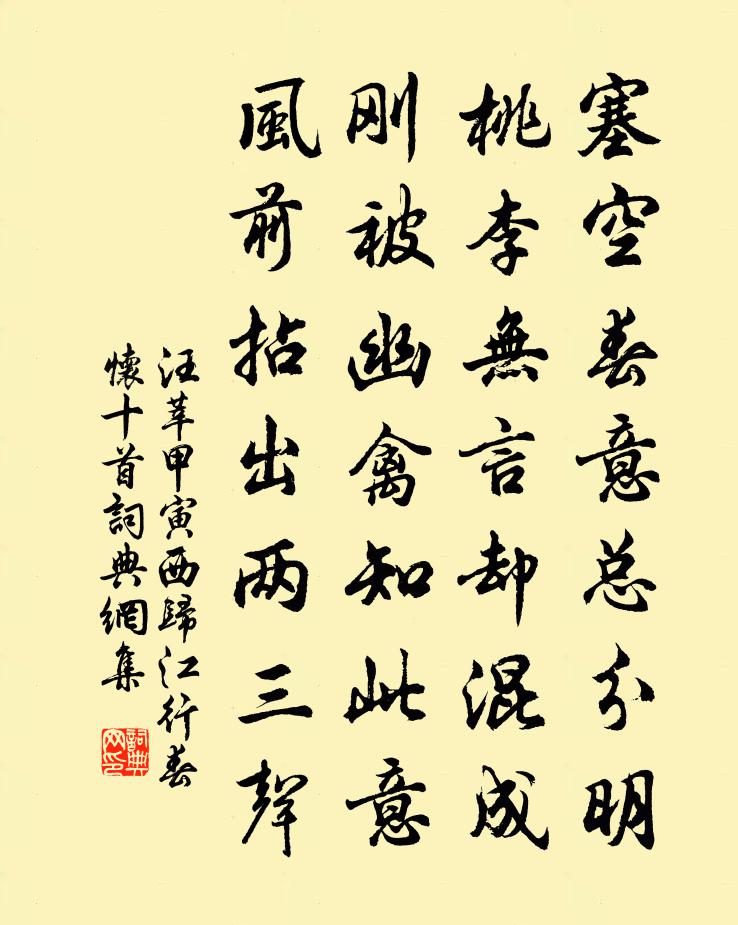 塞空春意总分明
桃李無言却混成
刚被幽禽知此意
風前拈出两三聲
汪莘甲寅西歸江行春
懷十首詞典網集
詞典
网印